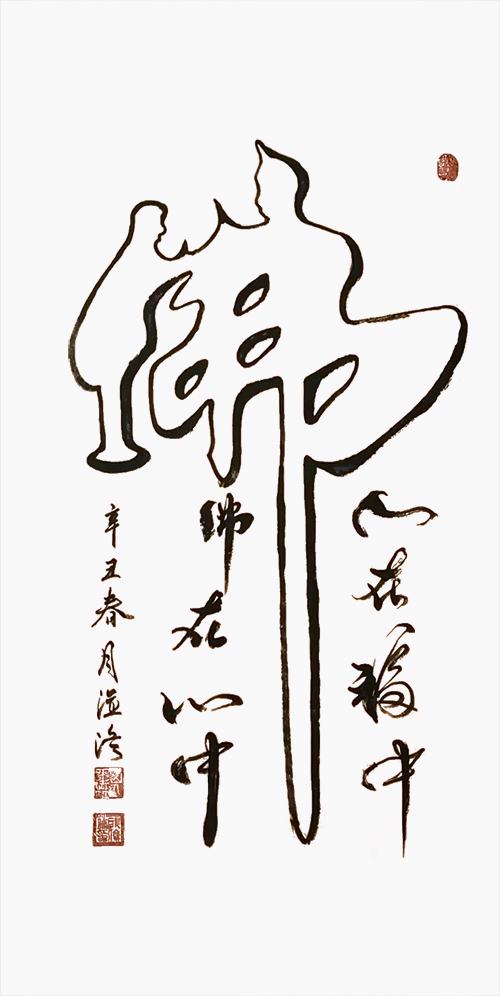 佛
人在福中
佛在心中
辛丑春月